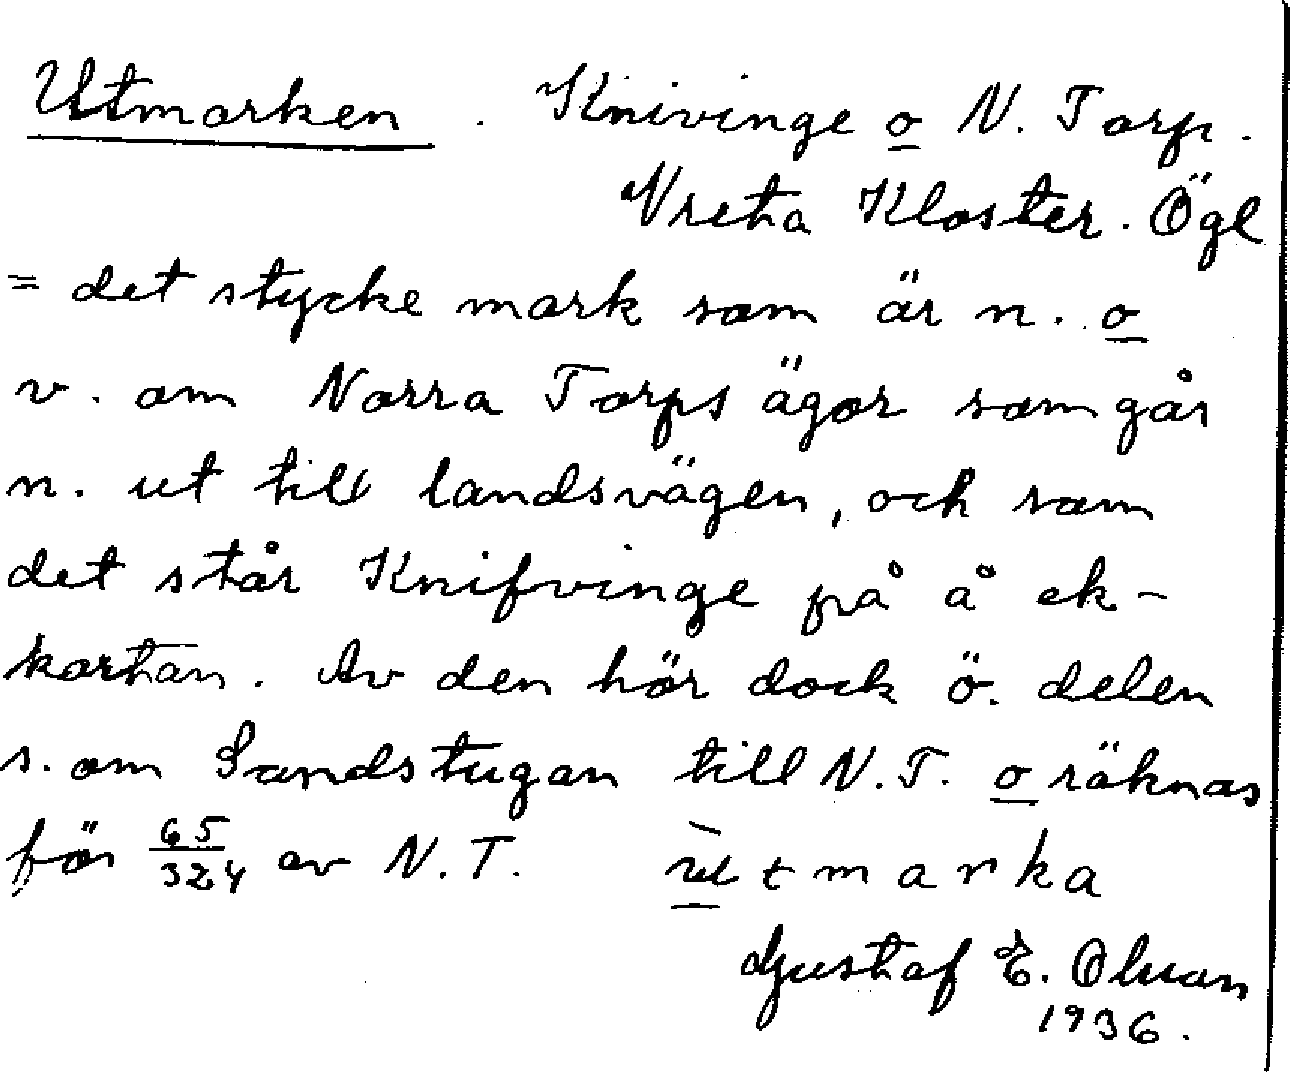 Utmarken. Knivinge o N. Torp.
Vreta Kloster. Ögl
= det stycke mark som är n. o
v. om Norra Torps ägor som går
n. ut till landsvägen, och som
det står Knifvinge på å ek-
kartan. Av den hör dock ö. delen
s. om Sandstugan till N.T. o räknas
för 65/324 av N.T. ùtmarka
Gustaf E. Olsson
1936.